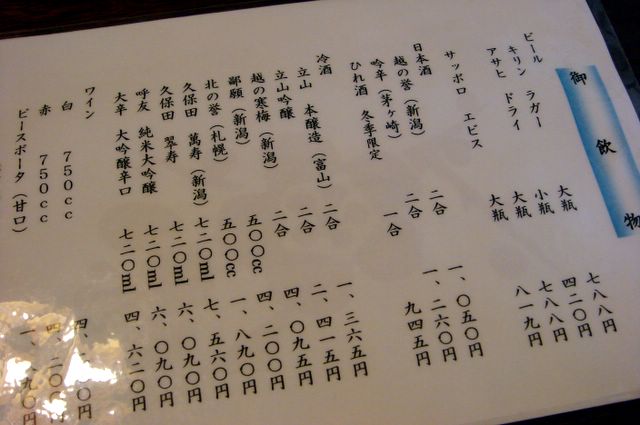 御飲物
ビール
キリン ラガー 大瓶 七八八円
小瓶 四二〇円
アサヒ ドライ 大瓶 七八八円
サッポロ エビス 大瓶 八一九円
日本酒
越の誉(新潟) 二合 一、〇五〇円
吟年(茅ヶ崎) 二合 一、二六〇円
ひれ酒 冬季限定 一合 九四五円
冷酒
立山 本醸造(富山) 二合 一、三六五円
立山吟醸 二合 二、四一五円
越の寒梅(新潟) 二合 四、〇九五円
鄙願(新潟) 五〇〇cc 四、二〇〇円
北の誉(札幌) 五〇〇cc 一、八九〇円
久保田 萬寿(新潟) 七二〇ml 七、五六〇円
久保田 翠寿 七二〇ml 六、〇九〇円
呼友 純米大吟醸 七二〇ml 六、〇九〇円
大辛 大吟醸辛口 七二〇ml 四、六二〇円
ワイン
白 750cc
赤 750cc
ピースポータ(甘口)